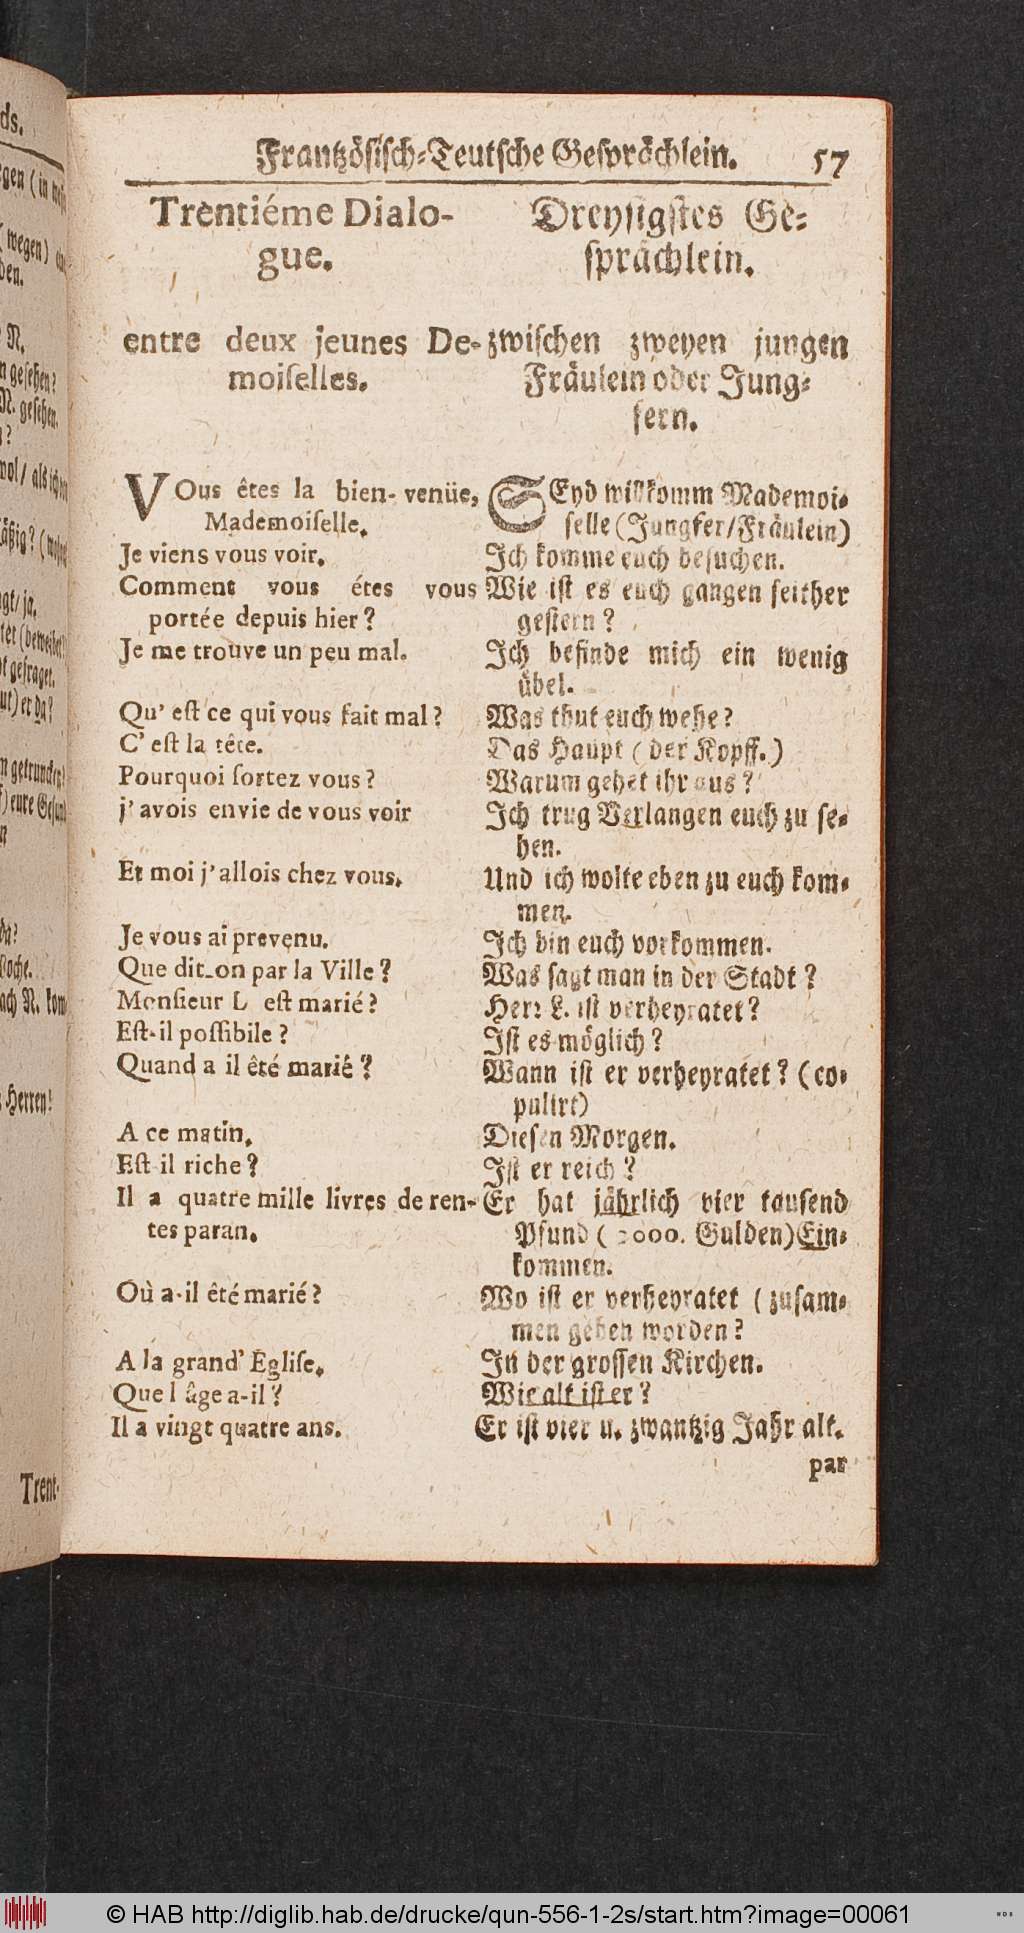 Frantzösisch-Teutsche Gesprächlein. 57
Trentiéme Dialo-
gue.
entre deux jeunes De-
moiſelles.
VOus êtes la bien-venüe,
Mademoiſelle.
Je viens vous voir.
Comment vous étes vous
portée depuis hier?
Je me trouve un peu mal.
Qu' eſt ce qui vous fait mal?
C' eſt la tête.
Pourquoi ſortez vous?
j' avois envie de vous voir
Et moi j' allois chez vous.
Je vous ai prevenu.
Que dit-on par la Ville?
Monſieur L eſt marié?
Eſt-il poſſibile?
Quand a il êté marié?
A ce matin.
Eſt-il riche?
Il a quatre mille livres de ren-
tes paran.
Où a-il êté marié?
A la grand' Egliſe.
Que l âge a-il?
Il a vingt quatre ans.
Dreyſigſtes Ge-
ſprächlein.
zwiſchen zweyen jungen
Fräulein oder Jung-
fern.
SEyd willkomm Mademoi-
ſelle (Jungfer/Fräulein)
Ich komme euch beſuchen.
Wie iſt es euch gangen ſeither
geſtern?
Ich befinde mich ein wenig
übel.
Was thut euch wehe?
Das Haupt (der Kopff.)
Warum gehet ihr aus?
Ich trug Verlangen euch zu ſe-
hen.
Und ich wolte eben zu euch kom-
men.
Ich bin euch vorkommen.
Was ſagt man in der Stadt?
Herr L. iſt verheyratet?
Iſt es möglich?
Wann iſt er verheyratet? (co-
pulirt)
Dieſen Morgen.
Iſt er reich?
Er hat jährlich vier tauſend
Pfund ( 2000. Gulden) Ein-
kommen.
Wo iſt er verheyratet (zuſam-
men geben worden?
In der groſſen Kirchen.
Wie alt iſt er?
Er iſt vier u. zwantzig Jahr alt.
par
ds.
Trent-
© HAB http://diglib.hab.de/drucke/qun-556-1-2s/start.htm?image=00061